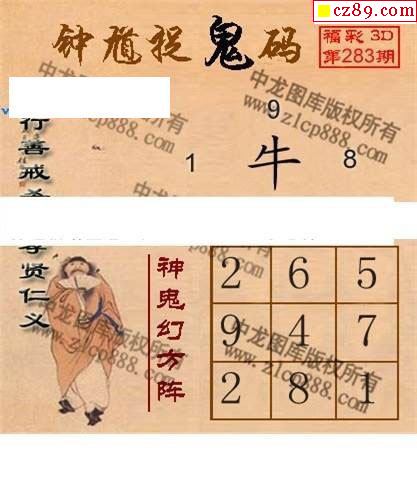 cz89.com
钟馗捉鬼码
福彩 3D
第283期
中龙图库版权所有
www.zlcp888.com
9
1 牛 8
行善戒
尊贤仁义
神鬼幻方阵
2 6 5
9 4 7
2 8 1
中龙图库版权所有
www.zlcp888.com